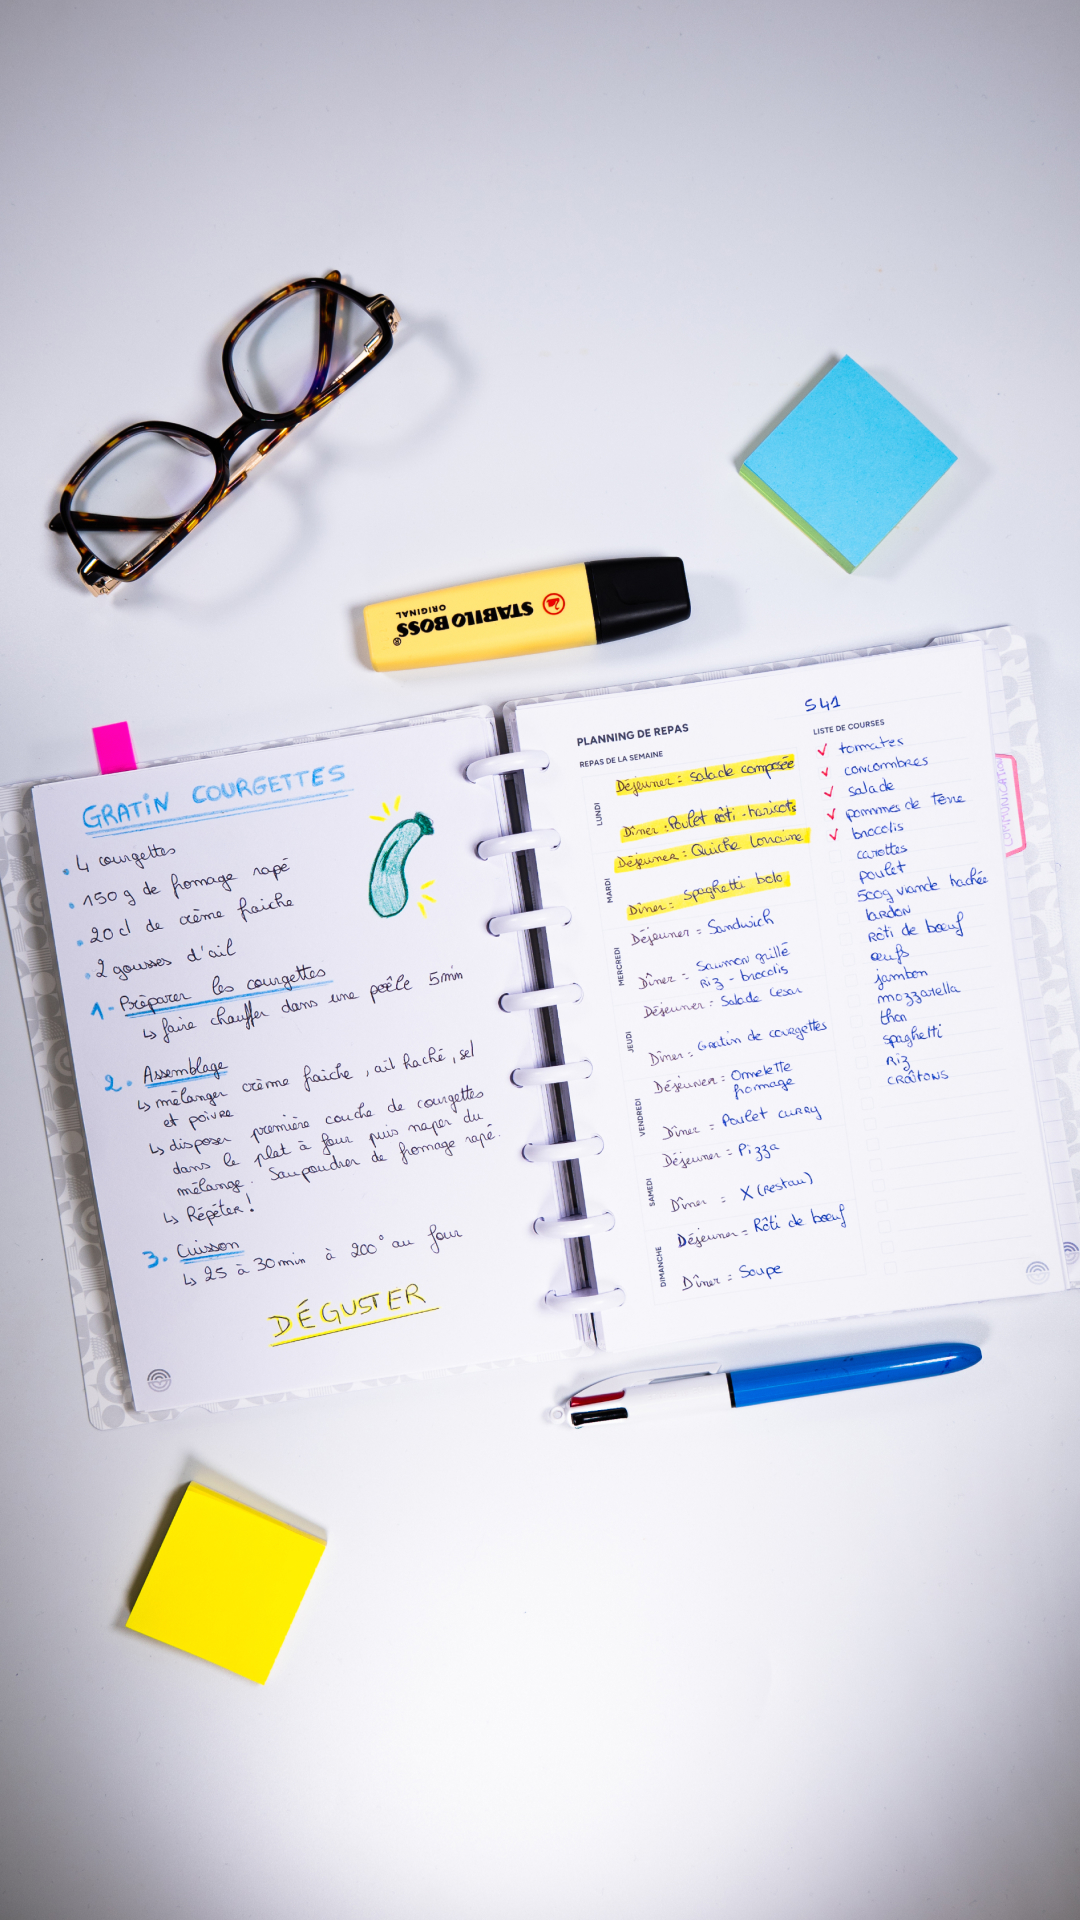 STABILO BOSS®
ORIGINAL
GRATIN COURGETTES
• 4 courgettes
• 150 g de fromage rapé
• 20 cl de crème fraiche
• 2 gousses d'ail
1- Préparer les courgettes
↳ faire chauffer dans une poêle 5min
2. Assemblage
↳ mélanger crème fraiche, ail haché, sel
et poivre
↳ disposer première couche de courgettes
dans le plat à four puis naper du
mélange. Saupoudrer de fromage rapé.
↳ Répéter!
3. Cuisson
↳ 25 à 30min à 200° au four
DÉGUSTER
S41
PLANNING DE REPAS
REPAS DE LA SEMAINE
LUNDI
Déjeuner = salade composée
Dîner = Poulet rôti - haricots
MARDI
Déjeuner = Quiche Lorraine
Dîner = spaghetti bolo
MERCREDI
Déjeuner = Sandwich
Dîner = Saumon grillé
Riz - brocolis
JEUDI
Déjeuner = Salade Cesar
Dîner = Gratin de courgettes
VENDREDI
Déjeuner = Omelette
fromage
Dîner = Poulet curry
SAMEDI
Déjeuner = Pizza
Dîner = X (restau)
DIMANCHE
Déjeuner = Rôti de boeuf
Dîner = Soupe
LISTE DE COURSES
✓ tomates
✓ concombres
✓ salade
✓ pommes de terre
✓ brocolis
carottes
poulet
500g viande hachée
lardon
Rôti de boeuf
œufs
jambon
mozzarella
thon
spaghetti
Riz
CROÛTONS
COMMUNICATION